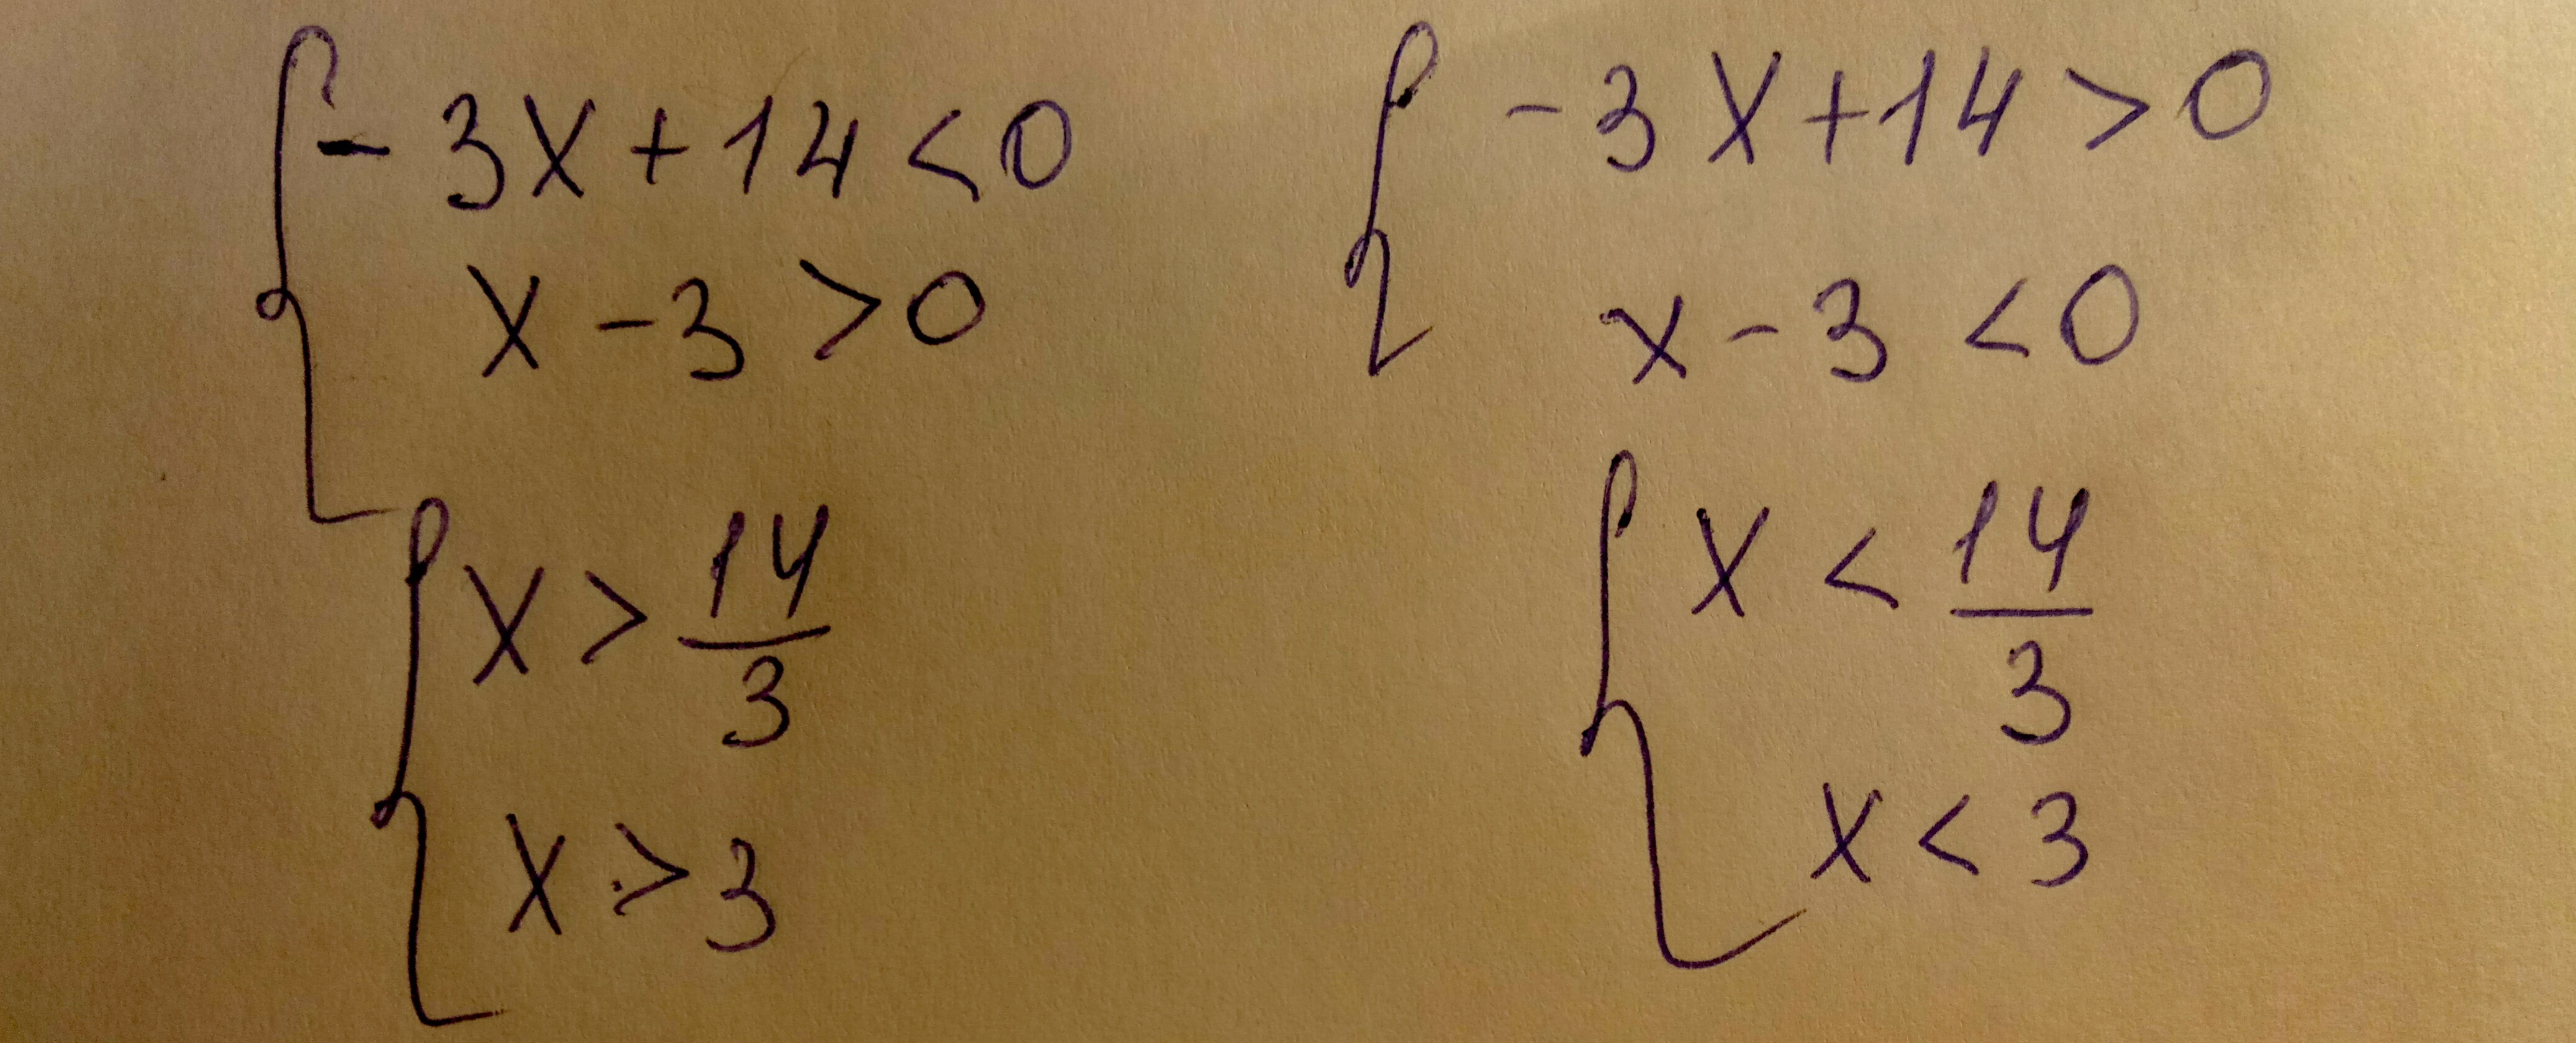 { -3x+14<0
x-3>0
{ x > 14/3
x > 3
{ -3x+14>0
x-3<0
{ x < 14/3
x < 3